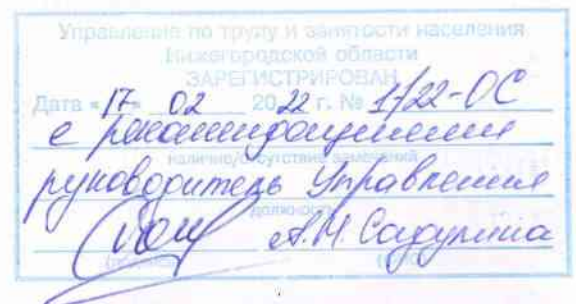 Управление по труду и занятости населения
Нижегородской области
ЗАРЕГИСТРИРОВАН
Дата «17» 02 2022 г. № 1/22-ОС
с рекомендациями
наличие/отсутствие замечаний
руководитель Управления
должность
А.М.